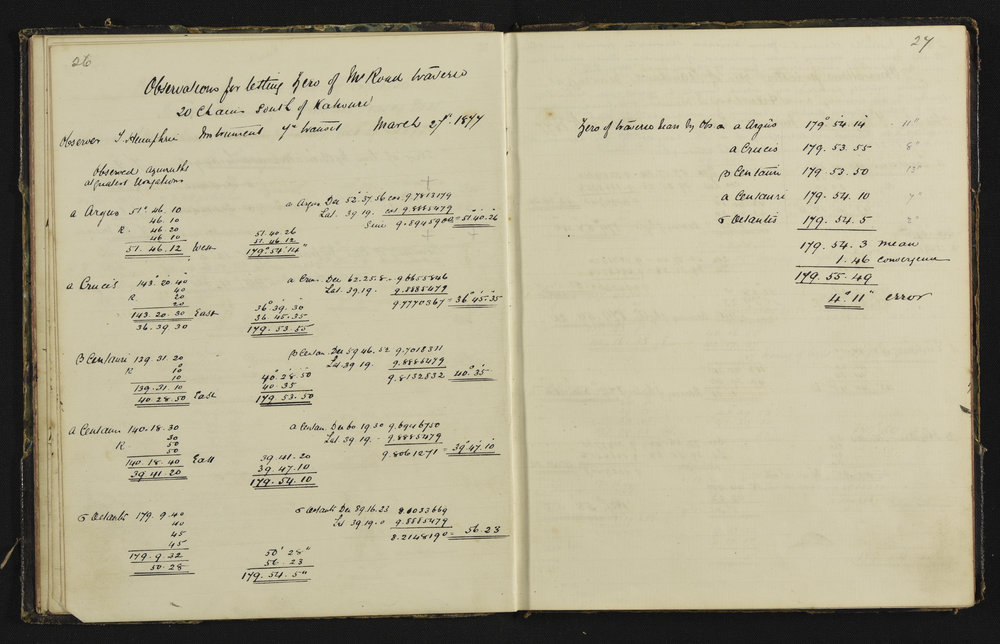 26
Observations for testing Zero of Mr Road traverse
20 Chains South of Kahouri
Observer T. Humphrie Instrument 7in transit March 27th. 1877
Observed azimuths
at greatest Elongations
a Argus 51°. 46. 10
46. 10
R. 46. 20
46. 10
51. 46. 12 West
51. 40. 26
51. 46. 12
179° 54' 14"
a Argus Dec 52°. 37'. 56 cos 9.7813179
Lat. 39 19. cos 9.8885479
Sine 9.8945900 = 51°. 40'. 26
a Crucis 143° 20' 40
40
R 20
20
143. 20. 30 East
36. 39. 30
36° 39' 30
36. 45. 35
179. 53. 55
a Cru. Dec 62. 25. 8 - 9.6655846
Lat. 39.19. 9.8885479
9.7770367 = 36° 45'. 35
β Centauri 139 31 20
R 10
10
139. 31. 10
40. 28. 50 East
40° 28'. 50
40. 35
179. 53. 50
β Centau. Dec 59 46. 52 9.7018311
Lat 39 19. 9.8885479
9.8132832 40° 35'
a Centauri 140. 18. 30
30
R 50
50
140. 18. 40 East
39. 41. 20
39. 41. 20
39. 47. 10
179. 54. 10
a Centau. Dec 60 19 30 9.6946750
Lat 39 19. - 9.8885479
9.8061271 = 39° 47'. 10
σ Octantis 179. 9. 40
40
45
45
179. 9. 32
50. 28
50' 28"
56. 23
179. 54. 5"
σ Octantis Dec 89. 16. 23 8.1033669
Lat 39. 19. 0 9.8885479
8.2148190 = 56. 28
27
Zero of traverse Mean by Obs on a Argus 179°. 54'. 14 11"
a Crucis 179. 53. 55 8"
β Centauri 179. 53. 50 13"
a Centauri 179. 54. 10 7"
σ Octantis 179. 54. 5 2"
179. 54. 3 mean
1. 46 convergence
179. 55. 49
4' 11" error